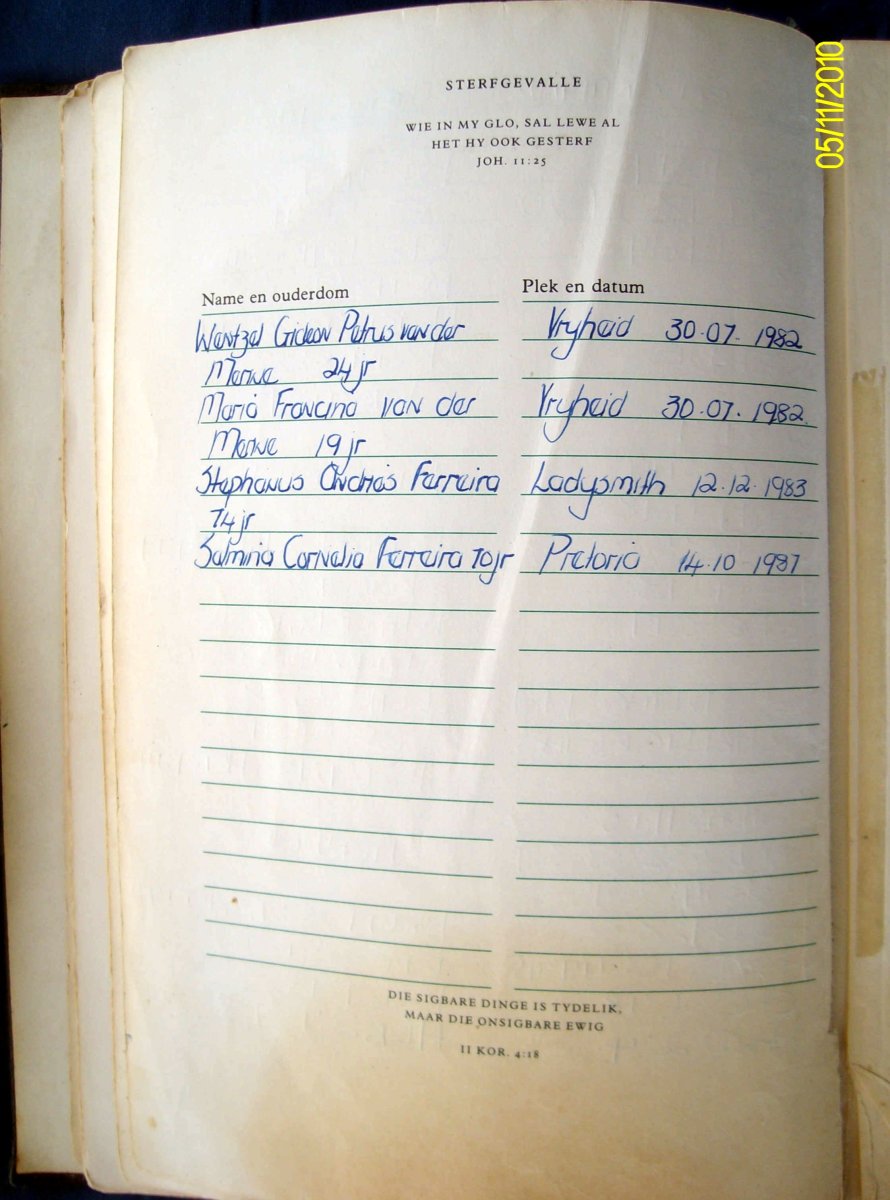 STERFGEVALLE
WIE IN MY GLO, SAL LEWE AL
HET HY OOK GESTERF
JOH. 11:25
Name en ouderdom Plek en datum
Wentzel Gideon Petrus van der Vryheid 30·07· 1982
Merwe 24 jr
Maria Francina van der Vryheid 30·07· 1982
Merwe 19 jr
Stephanus Andries Ferreira Ladysmith 12·12·1983
74 jr
Salmina Cornelia Ferreira 70jr Pretoria 14·10 1987
DIE SIGBARE DINGE IS TYDELIK,
MAAR DIE ONSIGBARE EWIG
II KOR. 4:18
05/11/2010